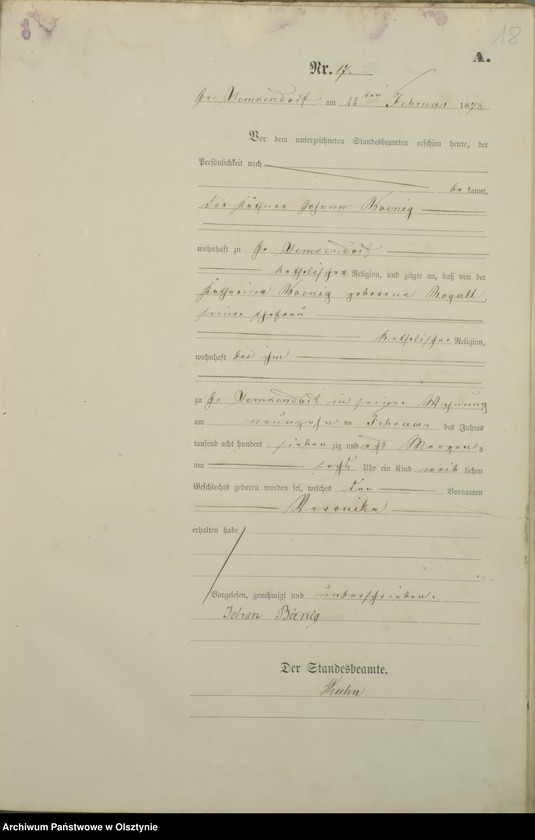 18
A.
Nr. 17.
Gr. Lemkendorf am ten Februar 1878
Vor dem unterzeichneten Standesbeamten erschien heute, der
Persönlichkeit nach
be kannt,
der Käthner Johann
wohnhaft zu Gr. Lemkendorf
katholischer Religion, und zeigte an, daß von der
Katharina geborene Rogall,
seiner Ehefrau
katholischer Religion,
wohnhaft bei ihm
zu Gr. Lemkendorf in seiner Wohnung
am neunzehn ten Februar des Jahres
tausend acht hundert sieben zig und acht Morgens
um sechs Uhr ein Kind weib lichen
Geschlechts geboren worden sei, welches den Vornamen
Veronika
erhalten habe
Vorgelesen, genehmigt und unterschrieben.
Johan Böenig
Der Standesbeamte.
Archiwum Państwowe w Olsztynie